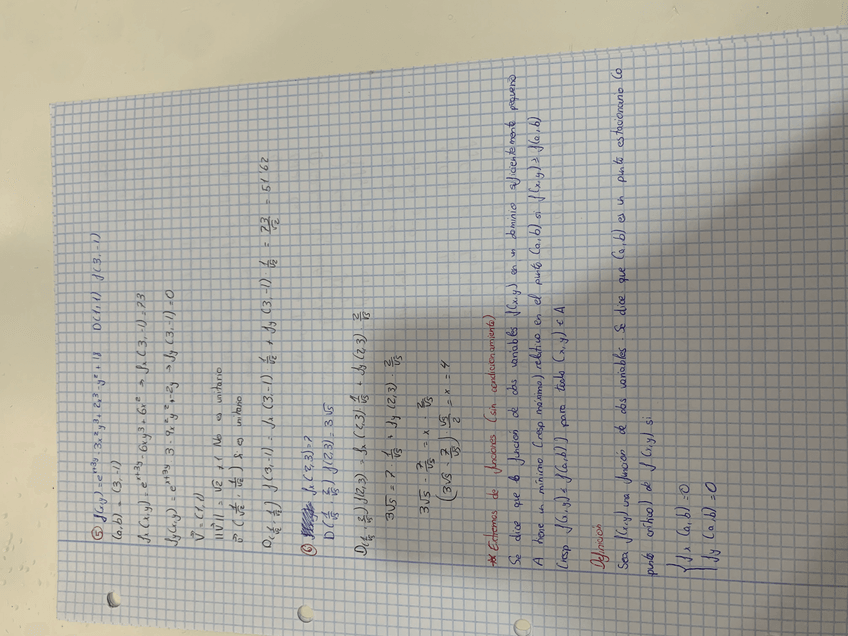 ⑤ f(x,y) = e^(x+3y) - 3x²y³ + 2x³ - y² + 11 D(1,1) f(3,-1)
(a,b) = (3,-1)
fx(x,y) = e^(x+3y) - 6xy³ + 6x² → fx(3,-1) = 73
fy(x,y) = e^(x+3y) · 3 - 9x²y² - 2y → fy(3,-1) = 0
v⃗ = (1,1)
||v⃗|| = √2 ≠ 1 No es unitario
v⃗ (1/√2, 1/√2) Si es unitario
D(1/√2, 1/√2) f(3,-1) = fx(3,-1) · 1/√2 + fy(3,-1) · 1/√2 = 73/√2 = 51'62
⑥ fx(2,3) = 7
D(1/√5, 2/√5) f(2,3) = 3√5
D(1/√5, 2/√5) f(2,3) = fx(2,3) · 1/√5 + fy(2,3) · 2/√5
3√5 = 7 · 1/√5 + fy(2,3) · 2/√5
3√5 - 7/√5 = x · 2/√5
(3√5 - 7/√5) √5/2 = x = 4
* Extremos de funciones (sin condicionamiento)
Se dice que la función de dos variables f(x,y) en un dominio suficientemente pequeño
A tiene un mínimo (resp máximo) relativo en el punto (a,b) si f(x,y) ≥ f(a,b)
(resp f(x,y) ≤ f(a,b)) para todo (x,y) ∈ A
Definición
Sea f(x,y) una función de dos variables. Se dice que (a,b) es un punto estacionario (o
punto crítico) de f(x,y) si
{ fx (a,b) = 0
fy (a,b) = 0